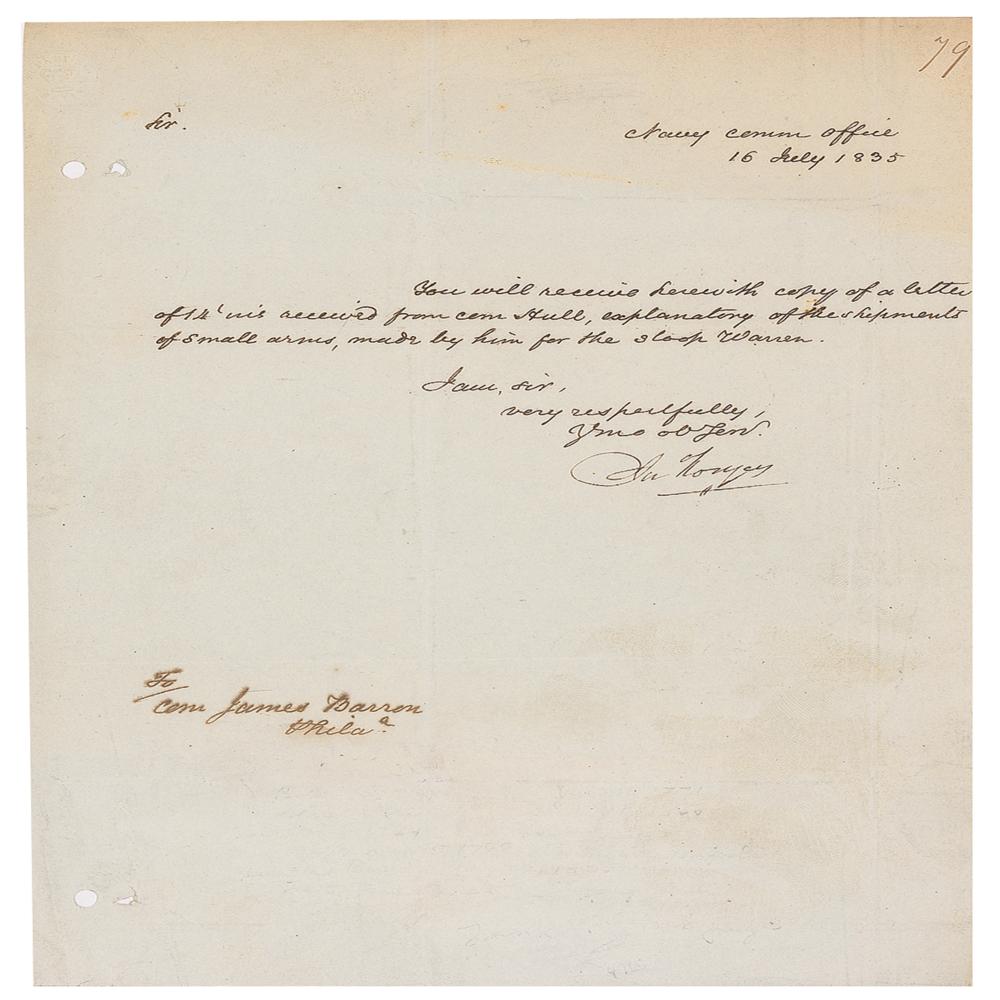 79
Sir.
Navy comm office
16 July 1835
You will receive herewith copy of a letter
of 14' ins received from com Hull, explanatory of the shipments
of small arms, made by him for the sloop Warren.
I am, sir,
very respectfully,
Y mo ob Serv.
Jn Rodgers
To
Com James Barron
Phila a